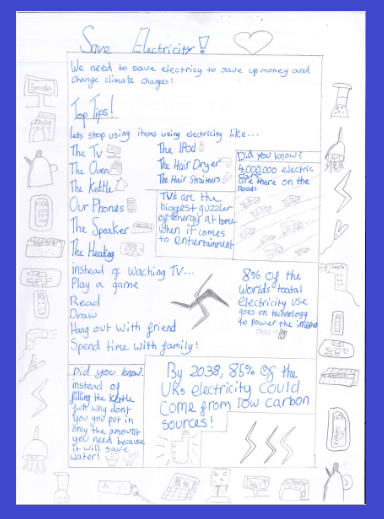 Save Electricity!
We need to save electricy to save up money and
change climate charges!
Top Tips!
lets stop using items using electricing like...
The Tv
The Oven
The Kettle
Our Phones
The Speaker
The Heating
The IPod
The Hair Dryer
The Hair Straitners
Did you know?
4,000,000 electric
are there on the
Roads
TVs are the
biggest guzzler
of energy at home
when it comes
to entertainment
Instead of Waching TV...
Play a game
Read
Draw
Hang out with friend
Spend time with family!
8% of the
worlds toatal
Electricity use
goes on technology
to power the internet
Did you know.
instead of
filling the kettle
full why dont
you you put in
only the amount
you need because
it will save
water!
By 2038, 85% of the
UKs electricity could
come from low carbon
sources!